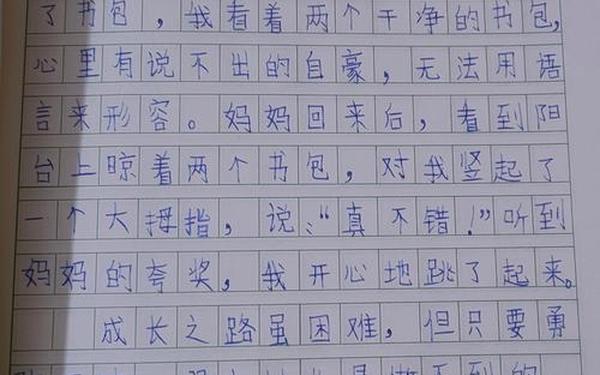 了书包，我看着两个干净的书包，
心里有说不出的自豪，无法用语
言来形容。妈妈回来后，看到阳
台上晾着两个书包，对我竖起了
一个大拇指，说：“真不错！”听到
妈妈的夸奖，我开心地跳了起来。
成长之路虽困难，但只要勇
做不到的